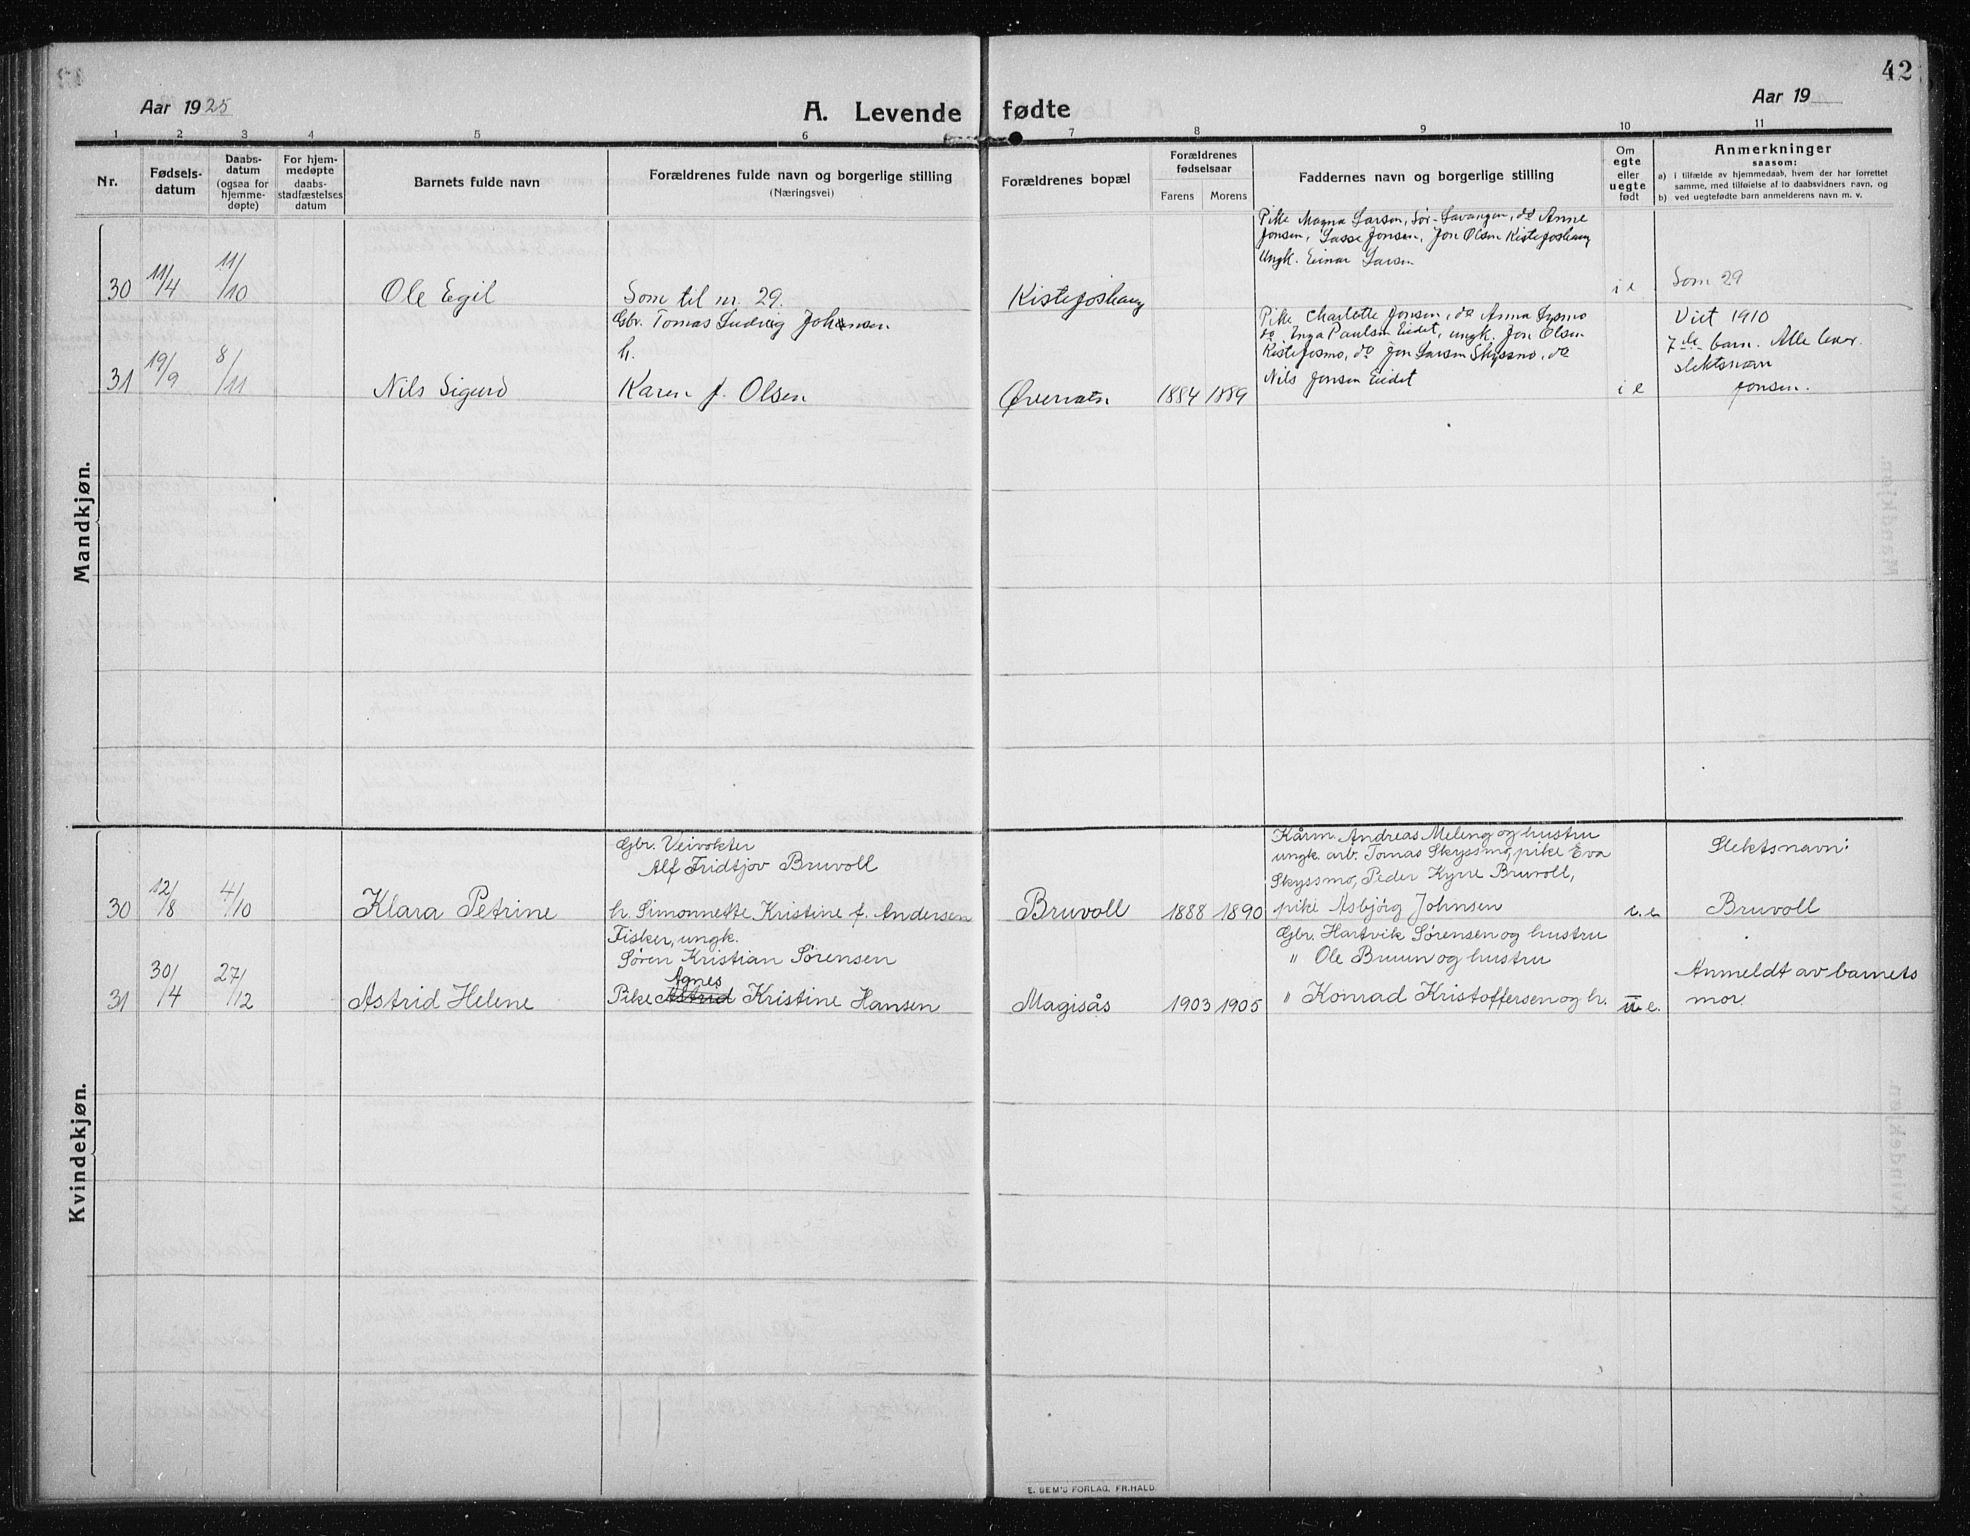 42
Aar 1925
A. Levende fødte
Aar 19
1 2 3 4 5 6 7 8 9 10 11
Nr.
Fødsels-
datum
Daabs-
datum
(ogsaa for
hjemme-
døpte)
For hjem-
medøpte
daabs-
stadfæstelses
datum
Barnets fulde navn
Forældrenes fulde navn og borgerlige stilling
(Næringsvei)
Forældrenes bopæl
Forældrenes
fødselsaar
Farens Morens
Faddernes navn og borgerlige stilling
Om
egte
eller
uegte
født
Anmerkninger
saasom:
a) i tilfælde av hjemmedaab, hvem der har forrettet
samme, med tilføielse af to daabsvidners navn, og
b) ved uegtefødte barn anmelderens navn m. v.
Mandkjøn.
30
11/4
11/10
Ole Egil
Som til nr. 29.
Kistefoshaug
Pike Magna Larsen, Sør-Lavangen, do Anne
Jonsen, Lasse Jonsen, Jon Olsen Kistefoshaug
Ungk. Einar Larsen
i e
Som 29
31
19/9
8/11
Nils Sigurd
Gbr. Tomas Ludvig Johansen
h.
Karen f. Olsen
Øvervatn
1884 1889
Pike Charlotte Jonsen, do Anna Lysmo
do Inga Paulsen Eidet, ungk. Jon Olsen
Kistefosmo, do Jon Larsen Skyssmo, do
Nils Jonsen Eidet
i e
Viet 1910
7de barn. Alle lever.
Slektsnavn
Jonsen.
Kvindekjøn.
30
12/8
4/10
Klara Petrine
Gbr. Veivokter
Alf Fridtjov Bruvoll
h. Simonnette Kristine f. Andersen
Bruvoll
1888 1890
Kårm. Andreas Meleng og hustru
ungk. arb. Tomas Skyssmo, pike Eva
Skyssmo, Peder Kyrre Bruvoll,
pike Asbjørg Johnsen
e. e.
Slektsnavn:
Bruvoll
31
30/4
27/12
Astrid Helene
Fisker, ungk.
Søren Kristian Sørensen
Agnes
Pike Astrid Kristine Hansen
Magisås
1903 1905
Gbr. Hartvik Sørensen og hustru
" Ole Bruun og hustru
" Konrad Kristoffersen og h.
u. e.
Anmeldt av barnets
mor.
E. SEM'S FORLAG, FR.HALD